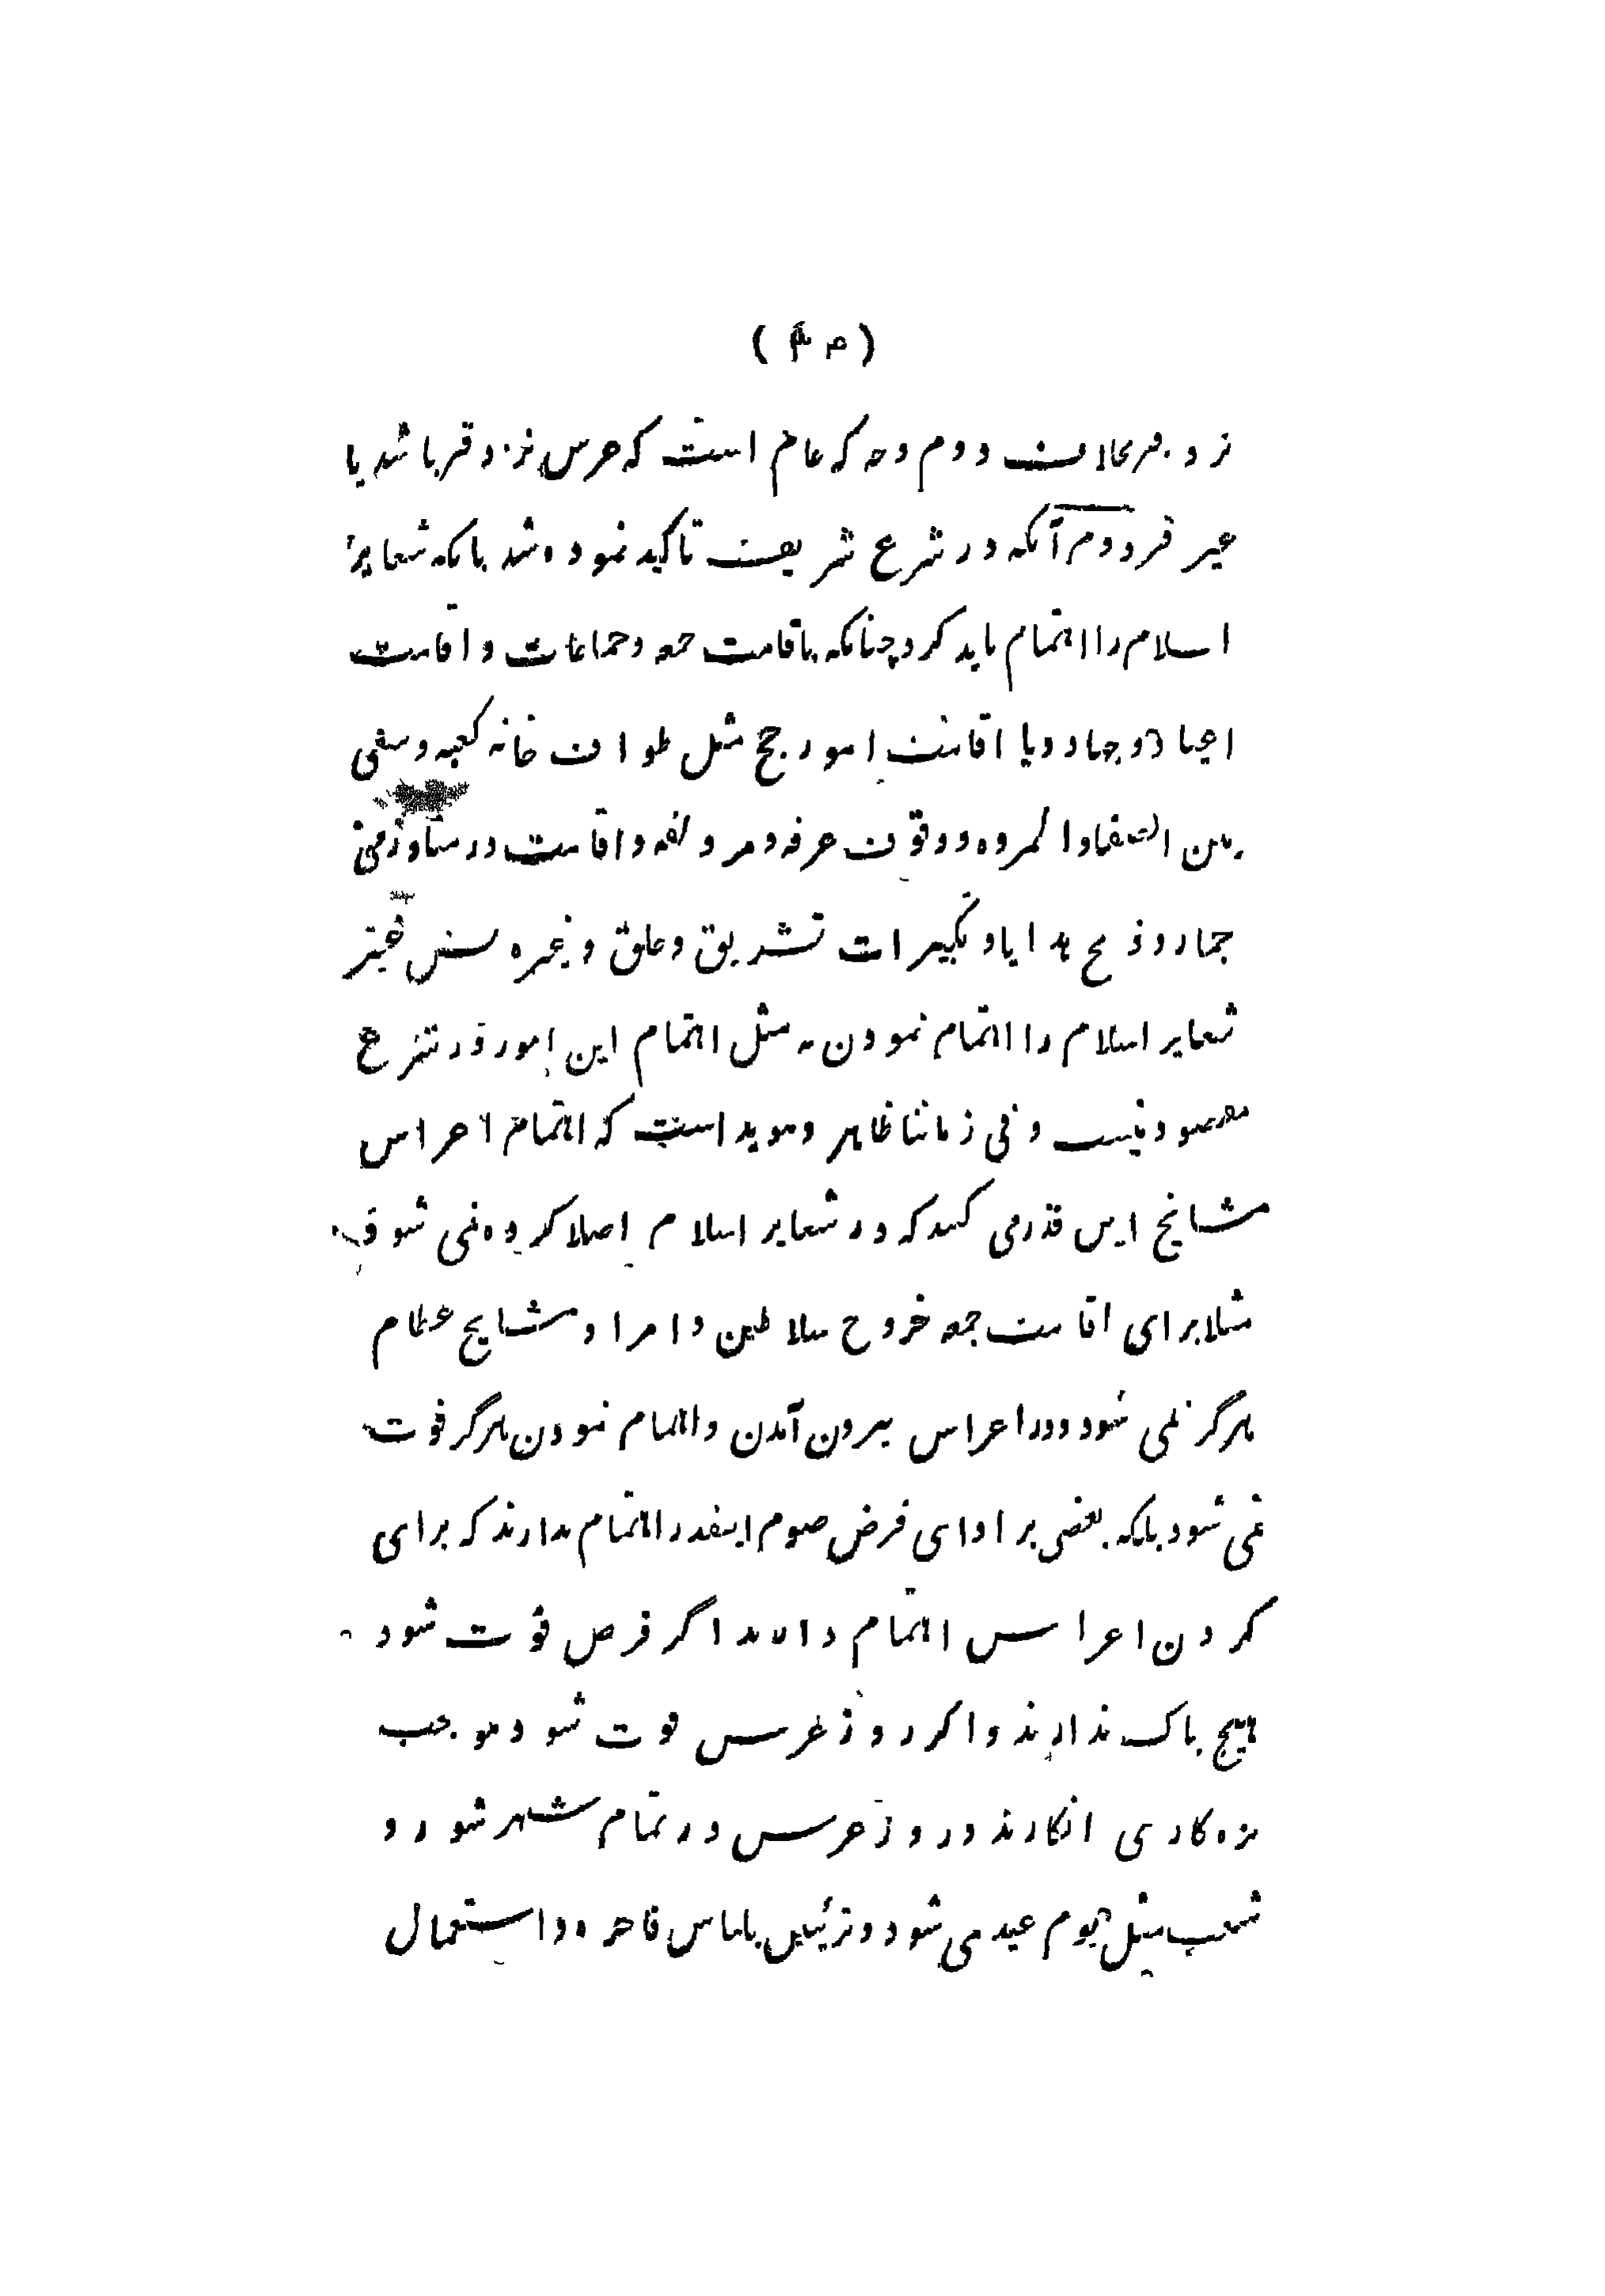 نزد قبر بخلاف دوم وجه که عام است که عرس نزد قبر باشد یا
غیر قبر دوم آنکه در شرع شریعت تاکید نموده شد بانکه شعایر
اسلام را اهتمام باید کرد چنانکه باقامت جمعه و جماعات و اقامت
اعیاد و جهاد و با اقامت امور حج مثل طواف خانه کعبه و سعی
بین الصفا و المروه و وقوف عرفه و مزدلفه و اقامت در منا و رمی
جمار و ذبح هدایا و تکبیرات تشریق و حلق و غیره پس غیر
شعایر اسلام را اهتمام نمودن مثل اهتمام این امور در شرع
مقصود نیست و فی زماننا ظاهر و هویدا است که اهتمام اعراس
مشایخ این قدر می کنند که در شعایر اسلام اصلا کرده نمی شود
مثلا برای اقامت جمعه خروج سلاطین و امرا و مشایخ عظام
هرگز نمی شود و در اعراس بیرون آمدن و اهتمام نمودن هرگز فوت
نمی شود بلکه بعضی بر ادای فرض صوم اینقدر اهتمام ندارند که برای
کردن اعراس اهتمام دارند اگر فرض فوت شود
هیچ باک ندارند و اگر روز عرس فوت شود موجب
بزه کاری انکارند و روز عرس در تمام شهر شور و
شعب مثل یوم عید می شود و تزئین بلباس فاخره و استعمال